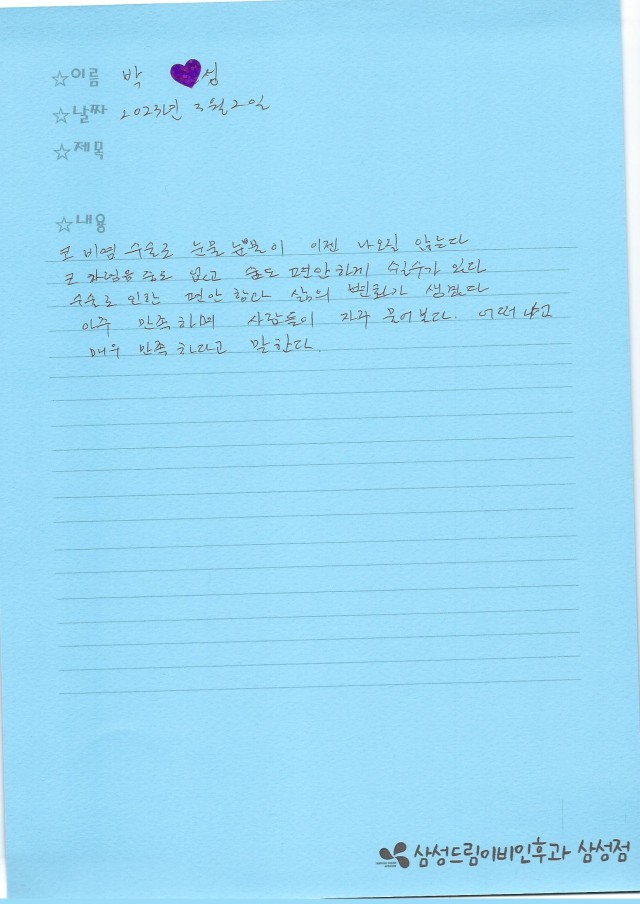 ☆이름 박 섬
☆날짜 2023년 3월 2일
☆제목
☆내용
코 비염 수술로 눈물 눈물이 이젠 나오질 않는다
코 가려움 증도 없고 숨도 편안하게 쉴수가 있다
수술로 인한 편안함과 삶의 변화가 생겼다
아주 만족하며 사람들이 자꾸 물어본다. 어떠냐고
매우 만족하다고 말한다.
삼성드림이비인후과 삼성점